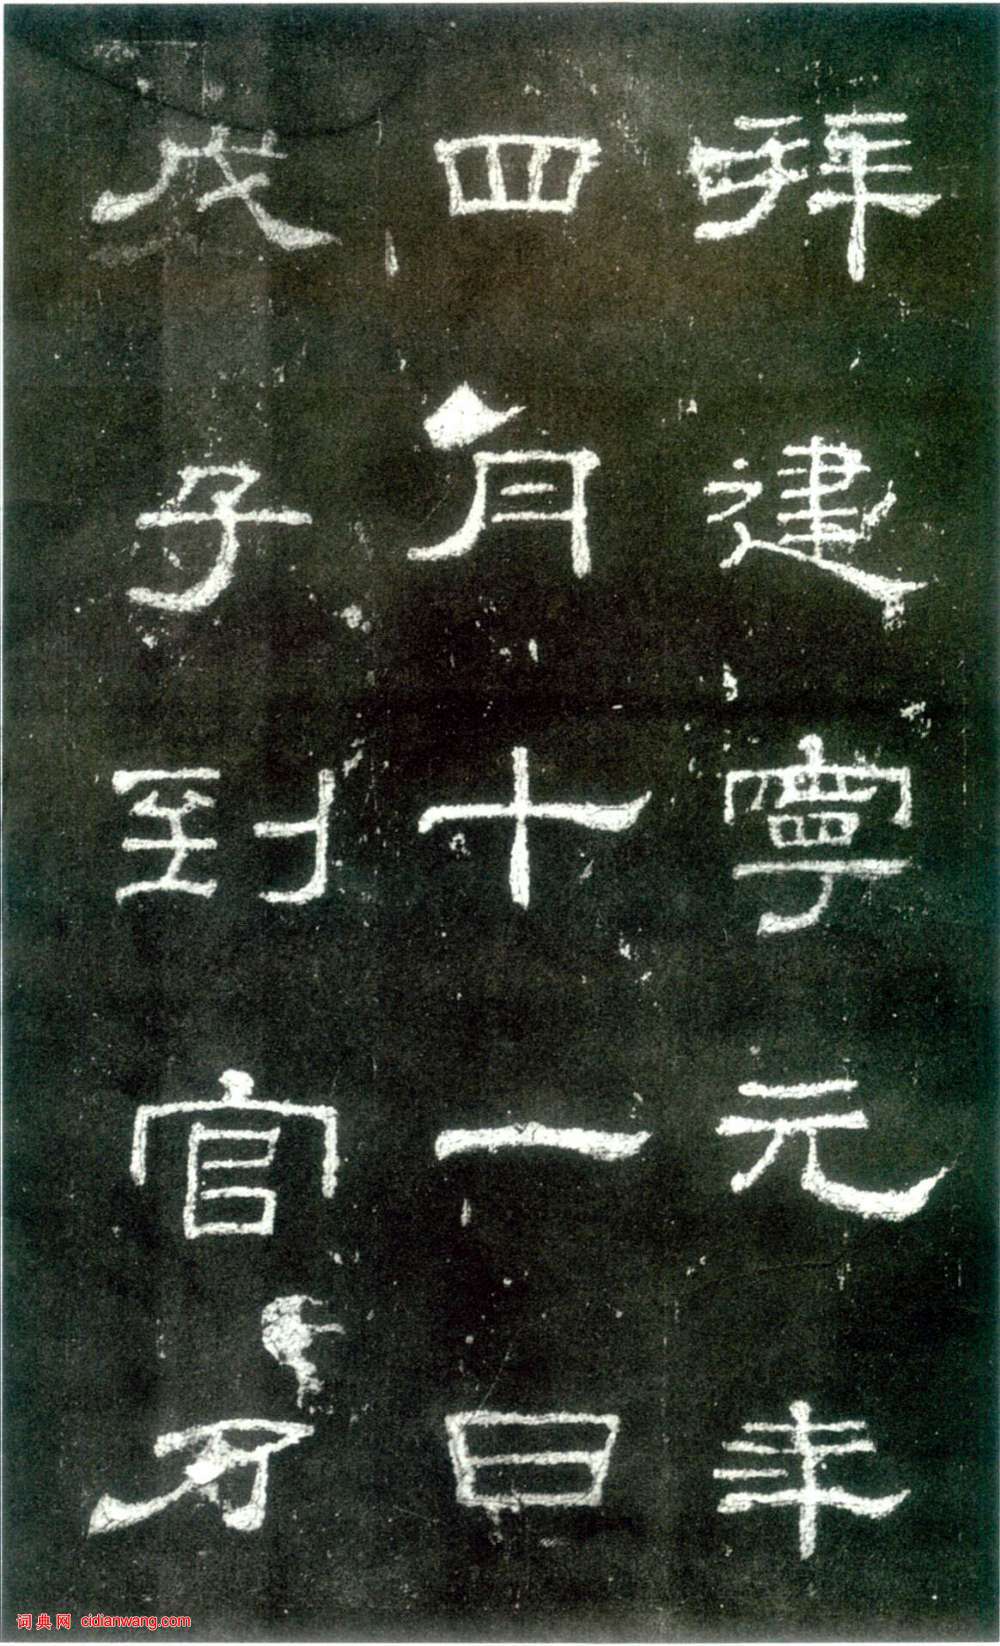 拜建寧元年
四月十一日
戊子到官乃
词典网 cidianwang.com